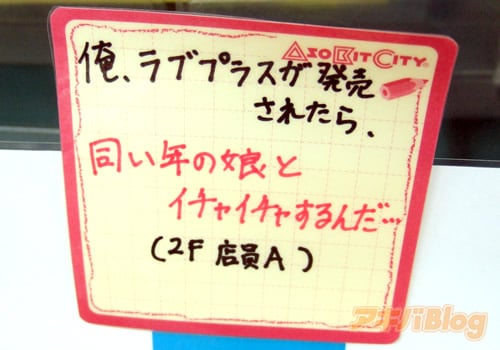 ASOBITCITY
俺、ラブプラスが発売
されたら、
同い年の娘と
イチャイチャするんだ…
(2F 店員A)
アキバBlog